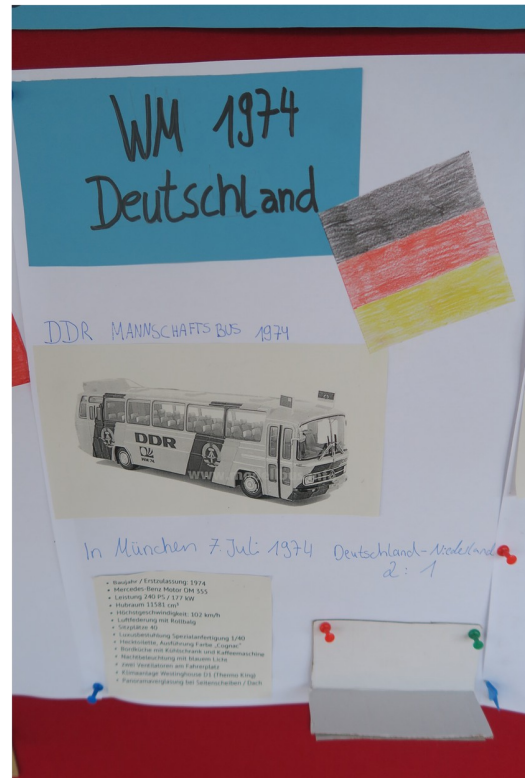 WM 1974
Deutschland
DDR MANNSCHAFTSBUS 1974
DDR
In München 7. Juli 1974 Deutschland-Niederland
2:1
• Baujahr / Erstzulassung: 1974
• Mercedes-Benz Motor OM 355
• Leistung 240 PS / 177 kW
• Hubraum 11581 cm³
• Höchstgeschwindigkeit: 102 km/h
• Luftfederung mit Rollbalg
• Sitzplätze 40
• Luxusbestuhlung Spezialanfertigung 1/40
• Hecktoilette, Ausführung Farbe „Cognac"
• Bordküche mit Kühlschrank und Kaffeemaschine
• Nachtbeleuchtung mit blauem Licht
• zwei Ventilatoren am Fahrerplatz
• Klimaanlage Westinghouse D3 (Thermo King)
• Panoramaverglasung bei Seitenscheiben / Dach